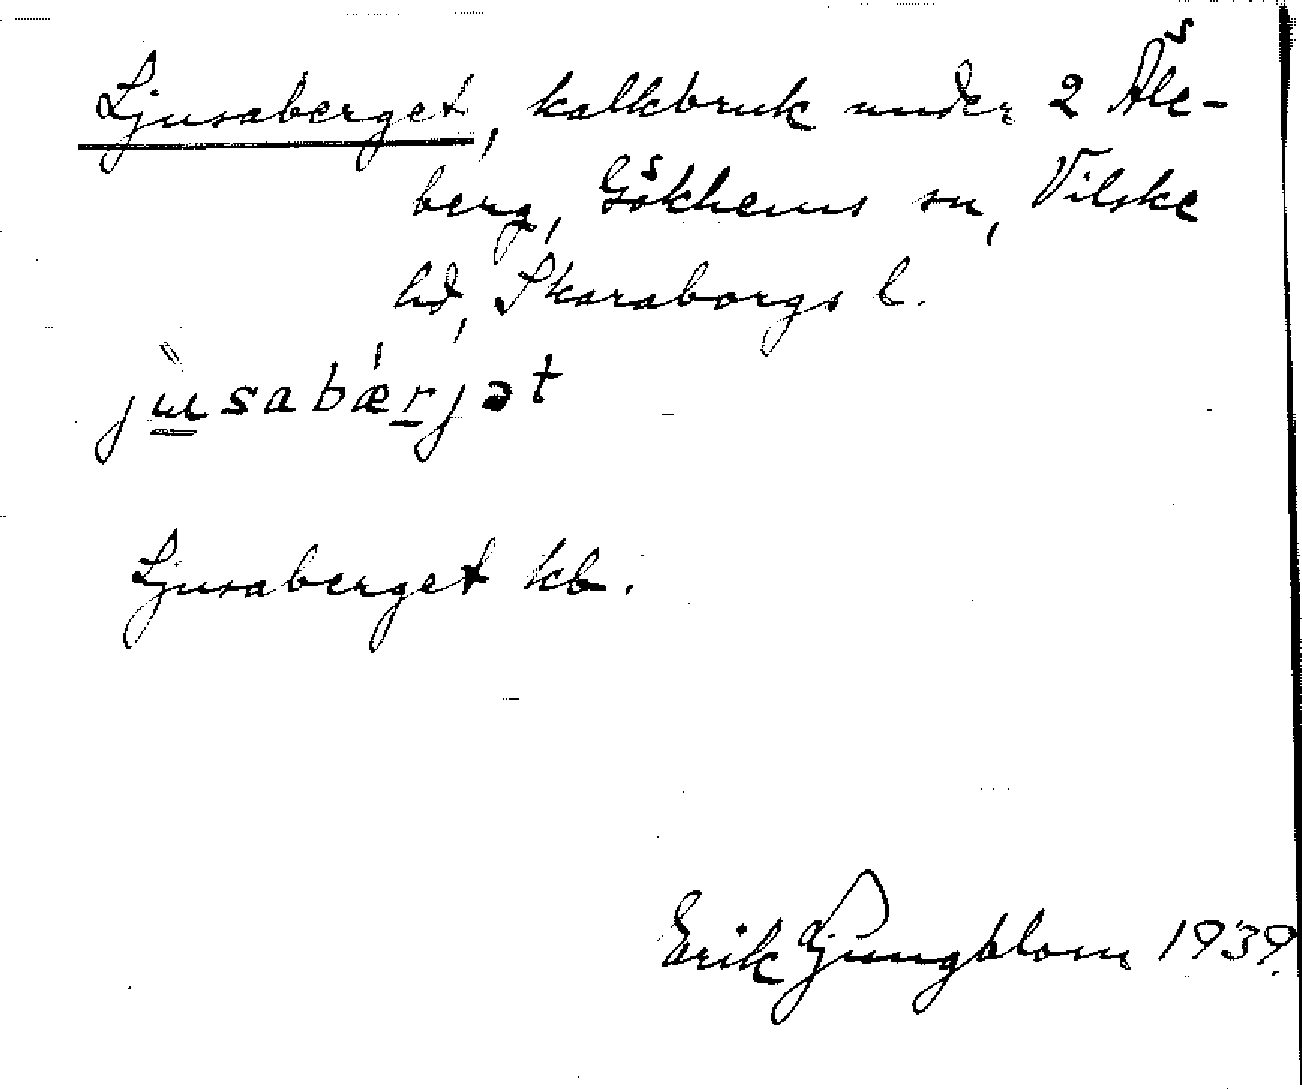 Ljusaberget, kalkbruk under 2 Åle-
berg, Gökhems sn, Vilske
hd, Skaraborgs l.
jùsabǽrjət
Ljusaberget kb.
Erik Ljungblom 1939.